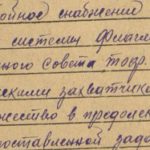 ойное снабжении
системы флагм
ного совета тов.
скими захватчика
жество в преодолен
поставленной зада